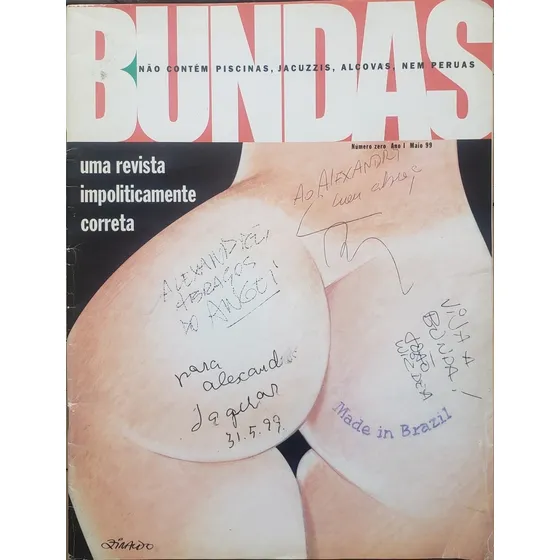 BUNDAS
NÃO CONTÊM PISCINAS, JACUZZIS, ALCOVAS, NEM PERUAS
Número zero Ano I Maio 99
uma revista
impoliticamente
correta
AO ALEXANDRE
meu abraço
ALEXANDRE,
ABRAÇOS
DO ANGELI
VIVA A
BUNDA!
para
alexand
Jaguar
31.5.99
Made in Brazil
ZIRALDO